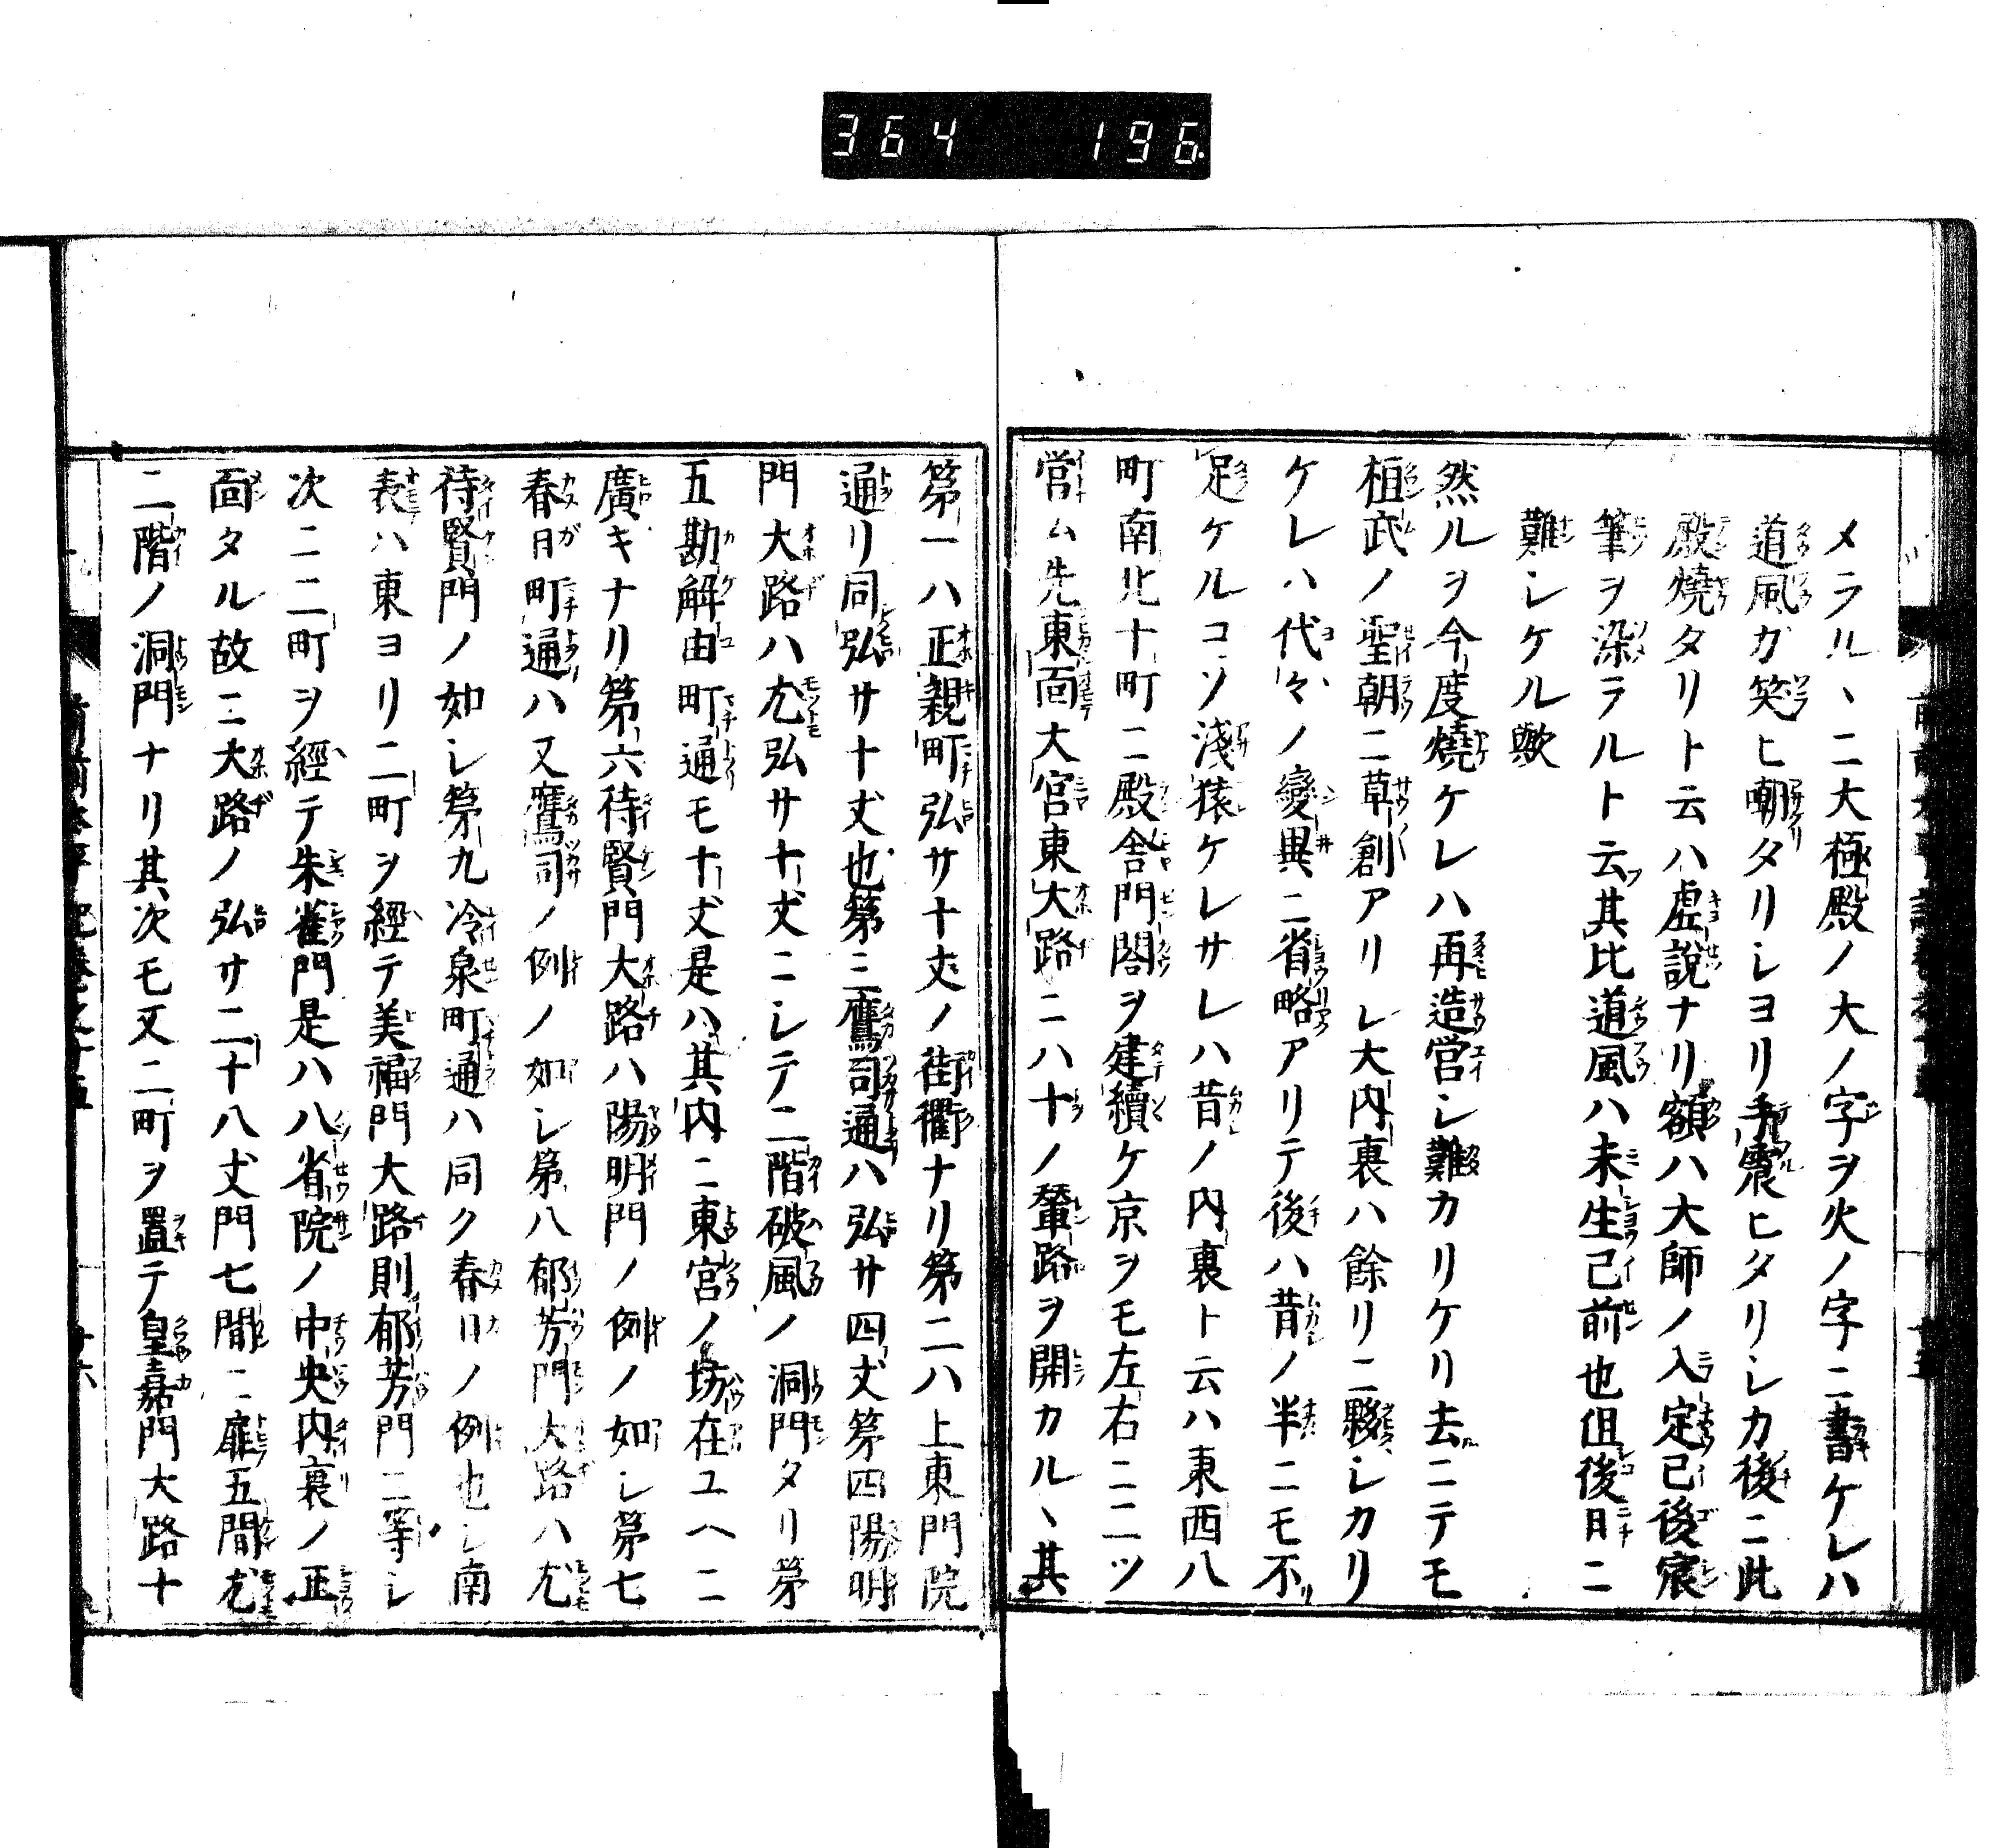 364 196
メラルヽニ大極殿ノ大ノ字ヲ火ノ字ニ書ケレハ
道風カ笑ヒ嘲タリシヨリ手震ヒタリシカ後ニ此
殿燒タリト云ハ虚説ナリ額ハ大師ノ入定已後宸
筆ヲ染ラルト云其比道風ハ未生已前也但後日ニ
難シケル歟
然ルヲ今度燒ケレハ再造営シ難カリケリ去ニテモ
桓武ノ聖朝ニ草創アリシ大内裏ハ餘リニ夥シカリ
ケレハ代々ノ變異ニ省略アリテ後ハ昔ノ半ニモ不
足ケルコソ淺猿ケレサレハ昔ノ内裏ト云ハ東西八
町南北十町ニ殿舎門閣ヲ建續ケ京ヲモ左右ニ二ツ
営ム先東面大宮東大路ニハ十ノ輦路ヲ開カルヽ其
第一ハ正親町弘サ十丈ノ街衢ナリ第二ハ上東門院
通リ同弘サ十丈也第三鷹司通ハ弘サ四丈第四陽明
門大路ハ尤弘サ十丈ニシテ二階破風ノ洞門タリ第
五勘解由町通モ十丈是ハ其内ニ東宮ノ坊在ユヘニ
廣キナリ第六待賢門大路ハ陽明門ノ例ノ如シ第七
春日町通ハ又鷹司ノ例ノ如シ第八郁芳門大路ハ尤
待賢門ノ如シ第九冷泉町通ハ同ク春日ノ例也シ南
表ハ東ヨリ二町ヲ經テ美福門大路則郁芳門ニ等シ
次ニ二町ヲ經テ朱雀門是ハ八省院ノ中央内裏ノ正
面タル故ニ大路ノ弘サ二十八丈門七間ニ扉五間尤
二階ノ洞門ナリ其次モ又二町ヲ置テ皇嘉門大路十